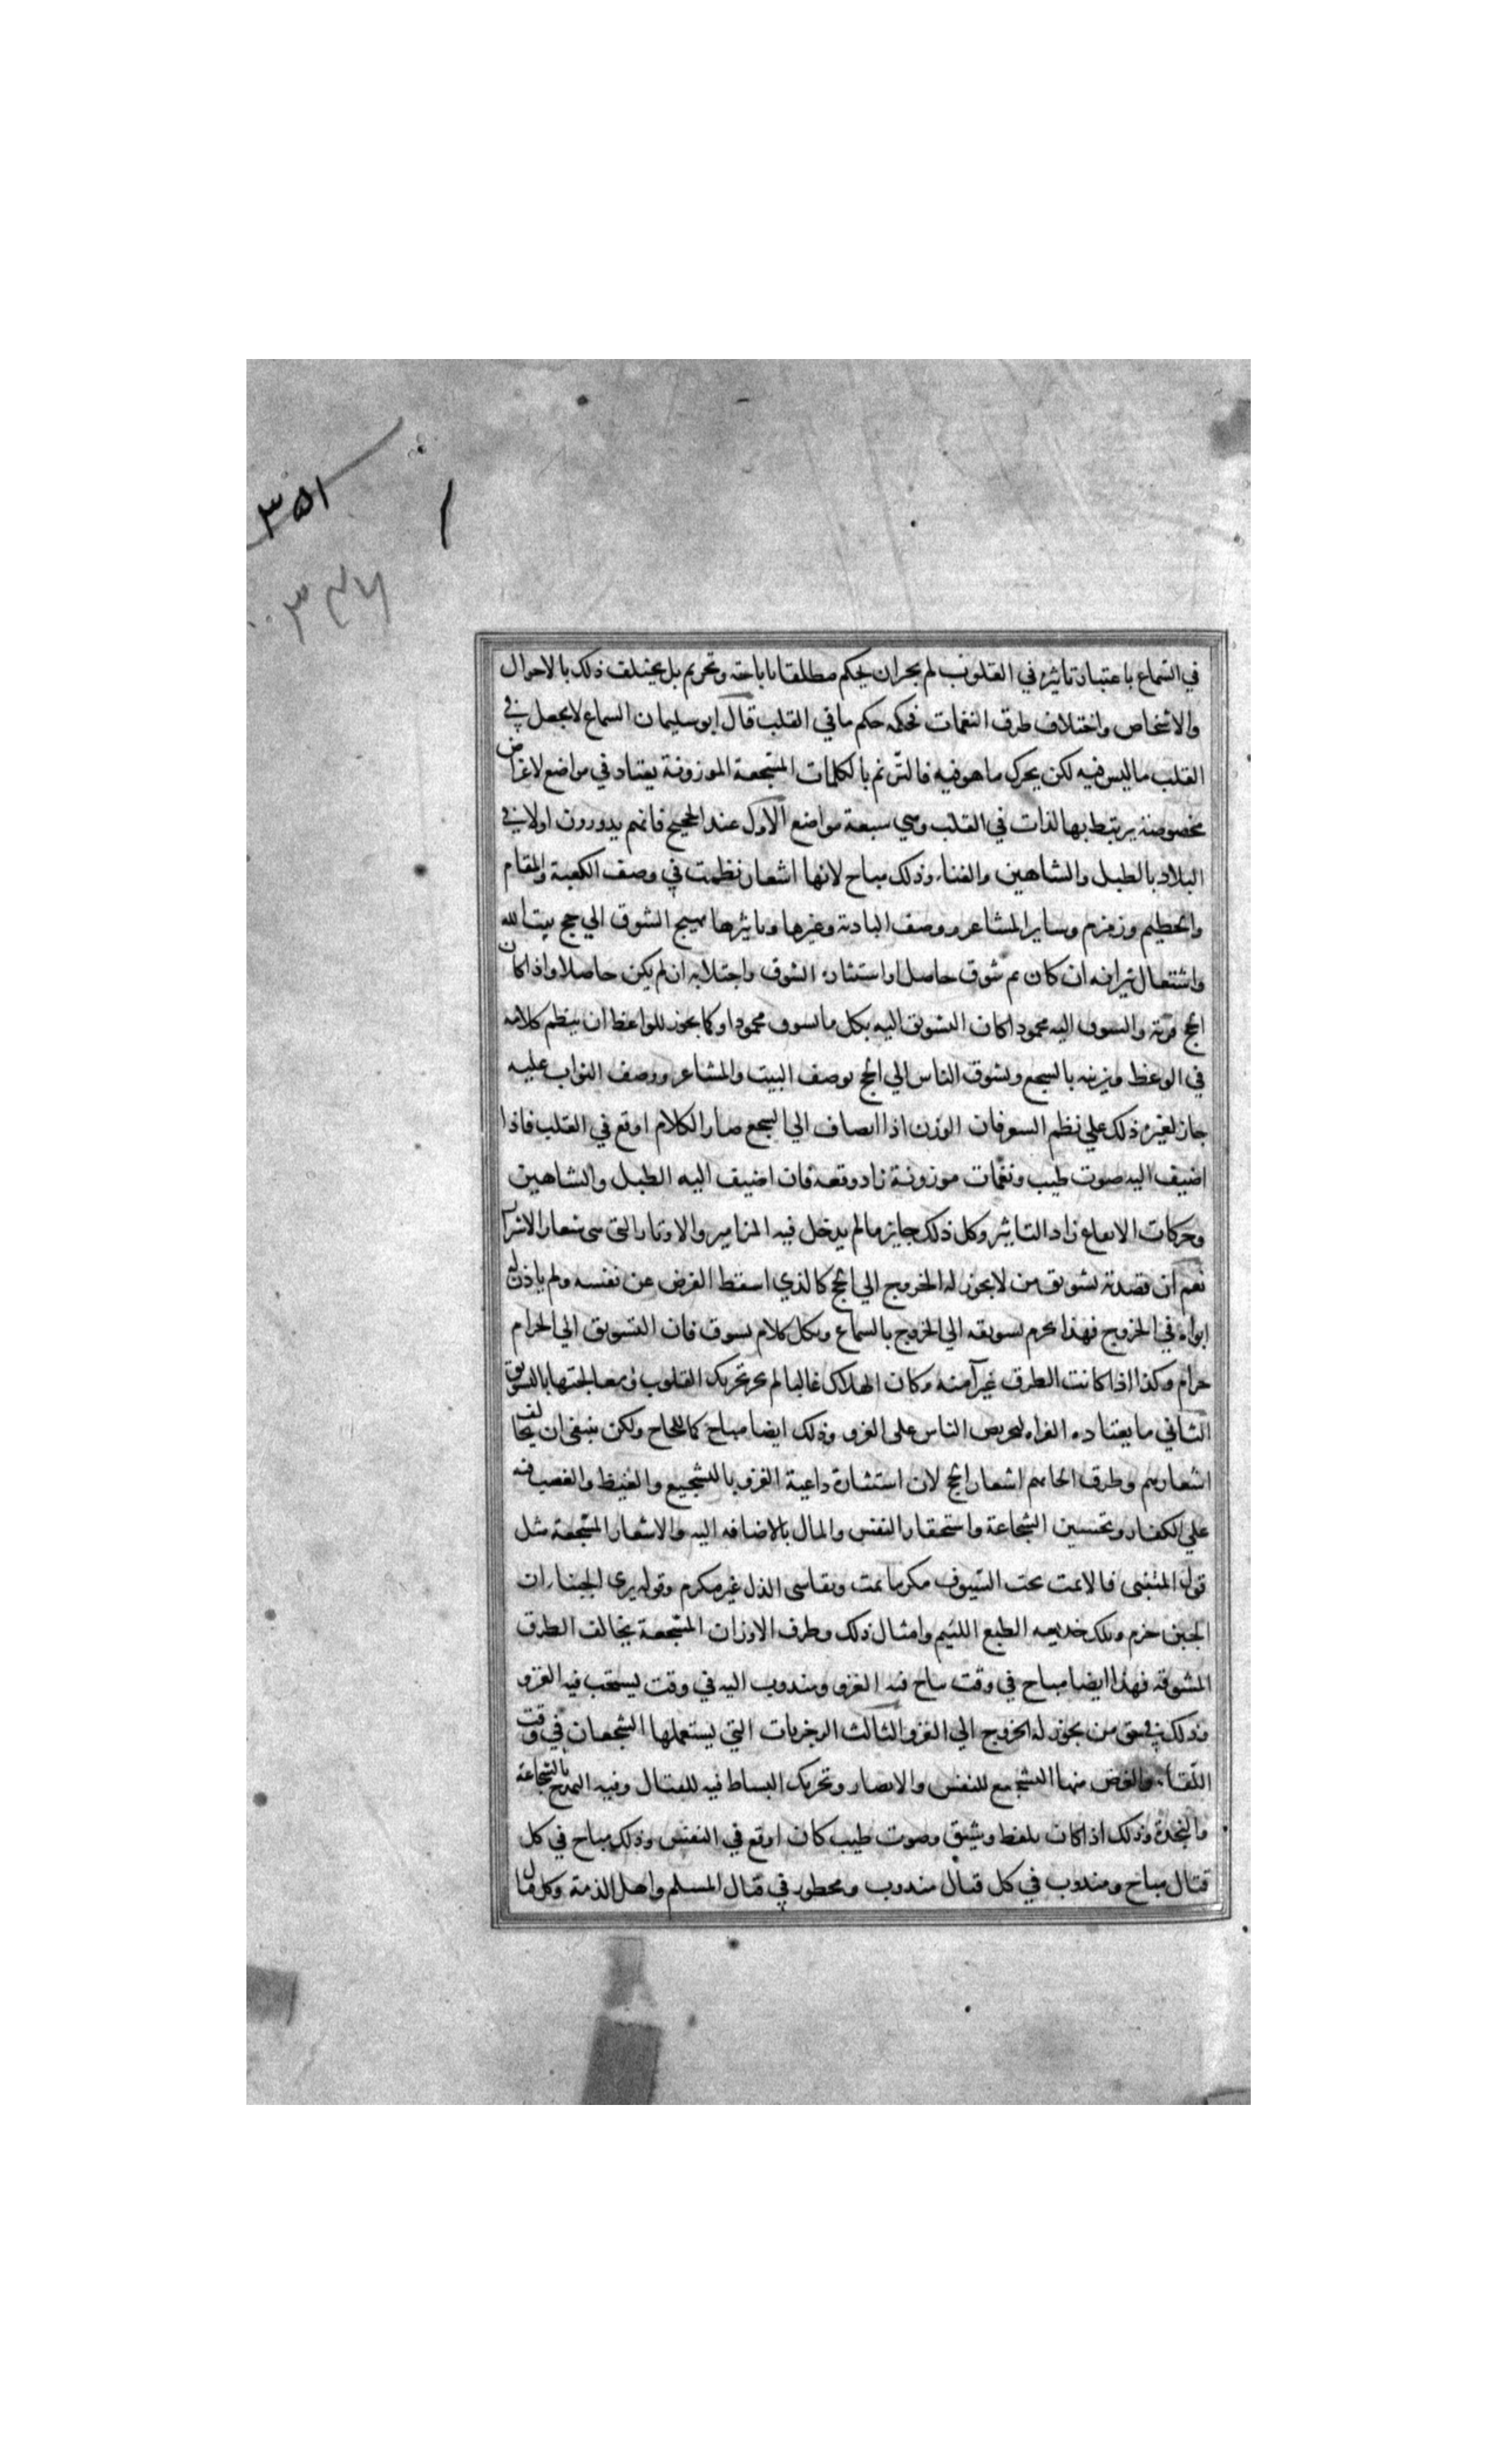 ٣٥١
٣٤٧
في السماع باعتبار تاثيره في القلوب لم يجز ان يحكم مطلقا باباحته وتحريم بل يختلف ذلك بالاحوال
والاشخاص واختلاف طرق النغمات فحكمه حكم ما في القلب قال ابو سليمان السماع لا يجعل في
القلب ما ليس فيه لكن يحرك ما هو فيه فالترنم بالكلمات المسجعة الموزونة يعتاد في مواضع لاغراض
مخصوصة يرتبط بها لذات في القلب وهي سبعة مواضع الاول عند الحجيج فانهم يدورون اولا في
البلاد بالطبل والشاهين والغناء وذلك مباح لانها اشعار نظمت في وصف الكعبة والمقام
والحطيم وزمزم وساير المشاعر ووصف البادية وغيرها وتاثيرها يهيج الشوق الي حج بيت الله
واشتعال نيرانه ان كان ثم شوق حاصل او استثاره الشوق واجتلابه ان لم يكن حاصلا واذا كان
الحج قربة والشوق اليه محمودا كان التشويق اليه بكل ما يشوق محمودا وكما يجوز للواعظ ان ينظم كلامه
في الوعظ ويزينه بالسجع ويشوق الناس الي الحج بوصف البيت والمشاعر ووصف الثواب عليه
جاز لغيره ذلك علي نظم الشعر فان الوزن اذا انضاف الي السجع صار الكلام اوقع في القلب فاذا
اضيف اليه صوت طيب ونغمات موزونة زاد وقعه فان اضيف اليه الطبل والشاهين
وحركات الايقاع زاد التاثير وكل ذلك جايز ما لم يدخل فيه المزامير والاوتار التي هي شعار الاشرار
نعم ان قصد به تشويق من لا يجوز له الخروج الي الحج كالذي اسقط الفرض عن نفسه ولم ياذن له
ابواه في الخروج فهذا يحرم تشويقه الي الخروج بالسماع وبكل كلام يشوق فان التشويق الي الحرام
حرام وكذا اذا كانت الطرق غير آمنه وكان الهلاك غالبا لم يجز تحريك القلوب ومعالجتها بالتشويق
الثاني ما يعتاده الغزاه لتحريض الناس علي الغزو وذلك ايضا مباح كما للحاج ولكن ينبغي ان يخالف
اشعارهم وطرق الحانهم اشعار الحج لان استثارة داعية الغزو بالتشجيع والغيظ والغضب فيه
علي الكفار وتحسين الشجاعة واستحقار النفس والمال بالاضافه اليه والاشعار المشجعة مثل
قول المتنبي فالا تمت تحت السيوف مكرما تمت وتقاسي الذل غير مكرم وقوله يري الجبناء ان
الجبن حزم وتلك خديعه الطبع اللئيم وامثال ذلك وطرق الاوزان المشجعة يخالف الطرق
المشوقه فهذا ايضا مباح في وقت يباح فيه الغزو ومندوب اليه في وقت يستحب فيه الغزو
وذلك في حق من يجوز له الخروج الي الغزو الثالث الرجزيات التي يستعملها الشجعان في وقت
اللقاء والغرض منها التشجيع للنفس والانصار وتحريك النشاط فيه للقتال وفيه التمدح بالشجاعة
والنجدة وذلك اذا كان بلفظ رشيق وصوت طيب كان اوقع في النفس وذلك مباح في كل
قتال مباح ومندوب في كل قتال مندوب ومحظور في قتال المسلم واهل الذمة وكل قتال